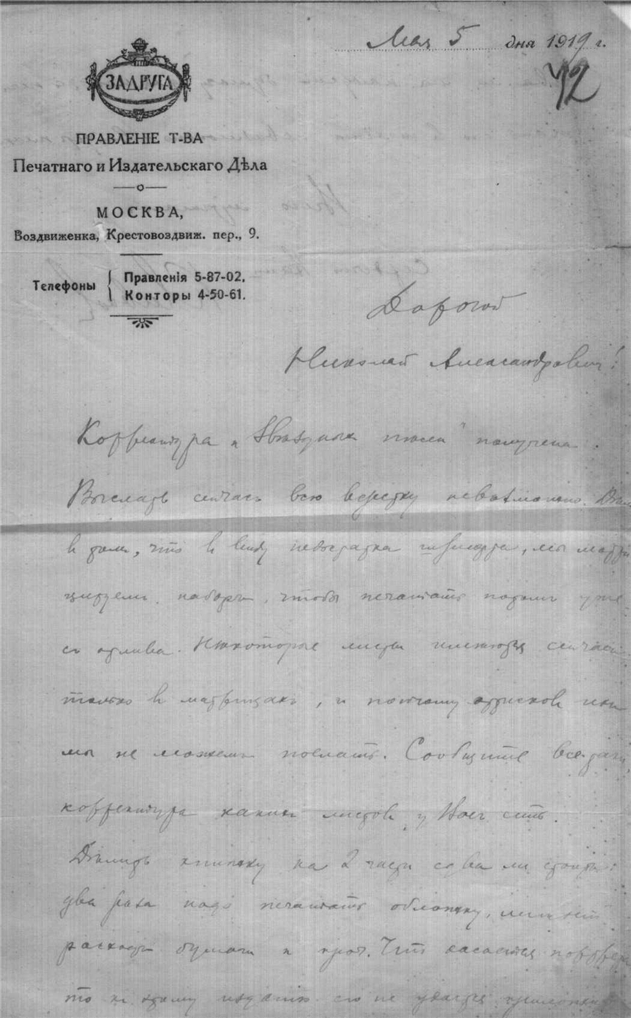 Мая 5 дня 1919 г.
42
ЗАДРУГА
ПРАВЛЕНІЕ Т-ВА
Печатнаго и Издательскаго Дѣла
МОСКВА,
Воздвиженка, Крестовоздвиж. пер., 9.
Телефоны
Правленія 5-87-02,
Конторы 4-50-61.
Дорогой
Николай Александрович!
Корректура „Звѣздных пѣсен" получена.
Выслать сейчас всю верстку невозможно. Дѣло
в том, что в виду недостатка шрифта, мы матри
цируем наборы, чтобы печатать потом уже
съ отлива. Нѣкоторые листы имѣются сейчас
только в матрицах, и поэтому оттисков их
мы не можем послать. Сообщите все-таки
корректура каких листов у Вас есть.
Дѣлить книжку на 2 части едва ли стоит:
два раза надо печатать обложку, лишній
расход бумаги и проч. Что касается портрета
то к этому изданію его не удастся приложить